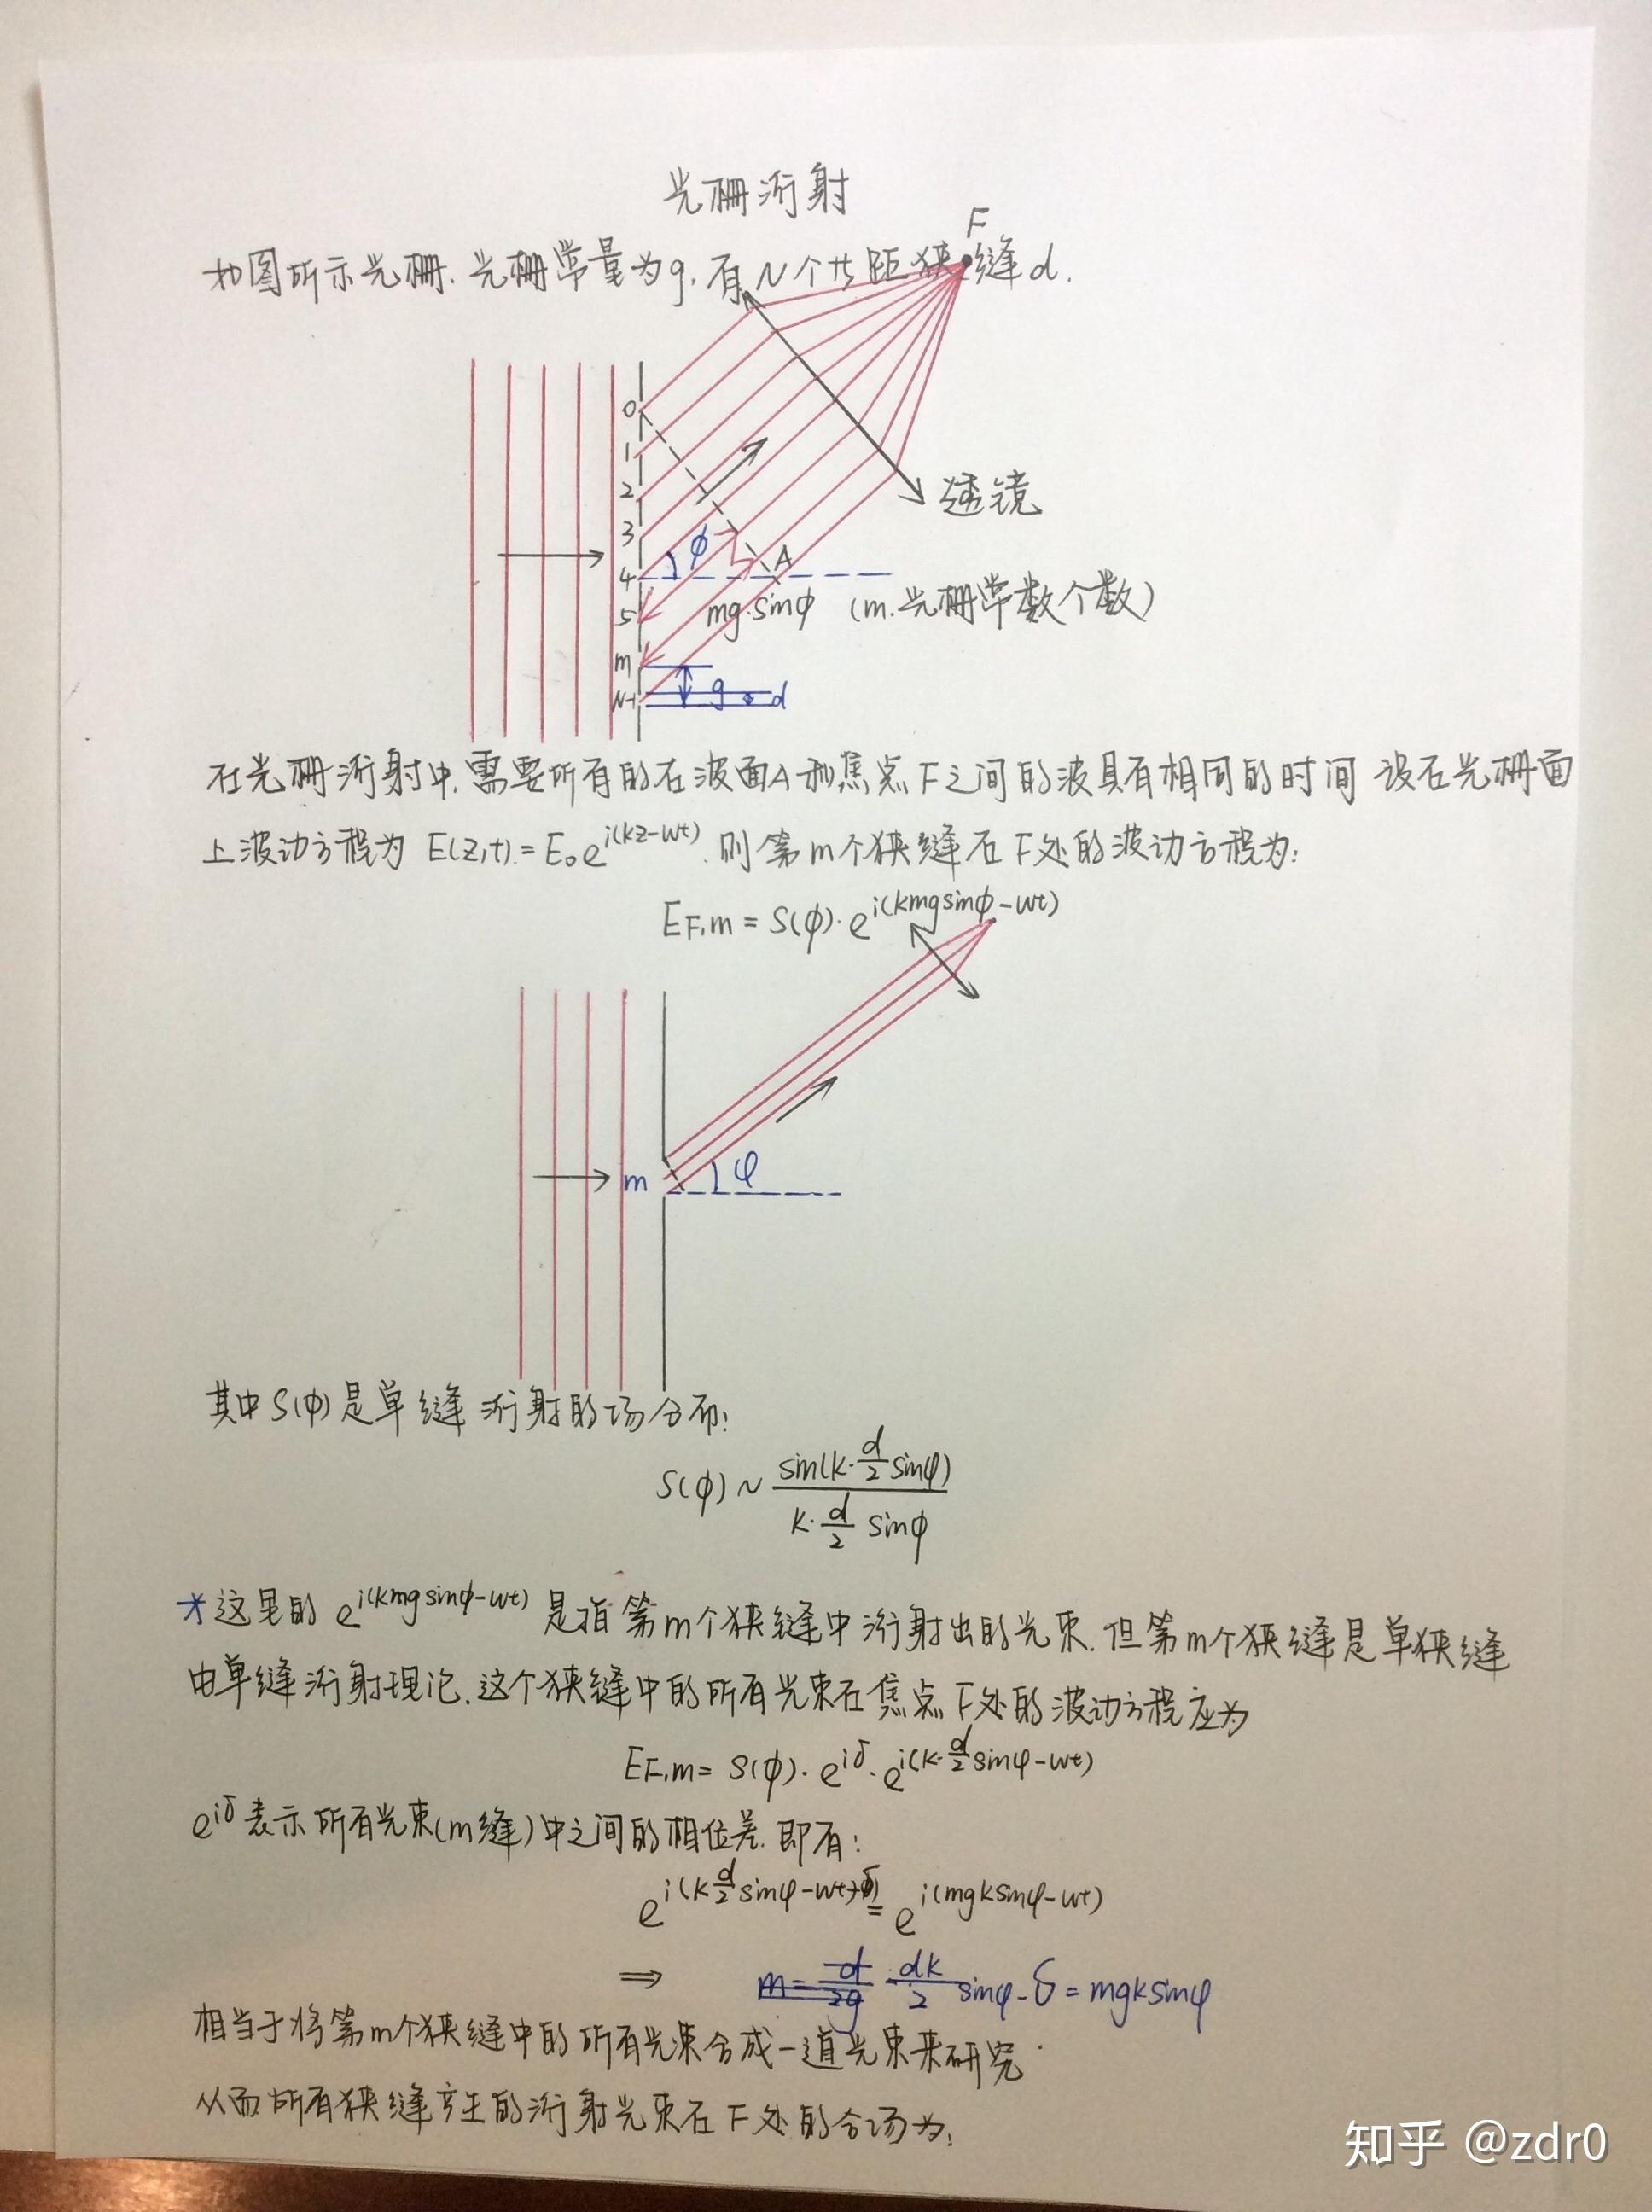 光栅衍射
如图所示光栅.光栅常量为g,有N个等距狭缝d.
F
0
1
2
3
4
5
m
N-1
ϕ
A
透镜
mg·sinϕ (m.光栅常数个数)
g
d
在光栅衍射中,需要所有的在波面A和焦点F之间的波具有相同的时间 设在光栅面
上波动方程为 E(z,t)=E₀e^{i(kz-wt)}.则第m个狭缝在F处的波动方程为:
E_{F,m} = S(ϕ)·e^{i(kmgsinϕ-wt)}
m
φ
其中S(ϕ)是单缝衍射的场分布:
S(ϕ) ~ \frac{sin(k·\frac{d}{2}sinφ)}{k·\frac{d}{2} sinϕ}
*这里的 e^{i(kmgsinϕ-wt)} 是指第m个狭缝中衍射出的光束.但第m个狭缝是单狭缝
由单缝衍射理论.这个狭缝中的所有光束在焦点F处的波动方程应为
E_{F,m} = S(ϕ)·e^{iδ}·e^{i(k·\frac{d}{2}sinφ-wt)}
e^{iδ}表示所有光束(m缝)中之间的相位差.即有:
e^{i(k\frac{d}{2}sinφ-wt+δ)} = e^{i(mgksinφ-wt)}
⇒ \frac{dk}{2} sinφ-δ = mgksinφ
相当于将第m个狭缝中的所有光束合成一道光束来研究.
从而所有狭缝产生的衍射光束在F处的合场为:
知乎 @zdr0